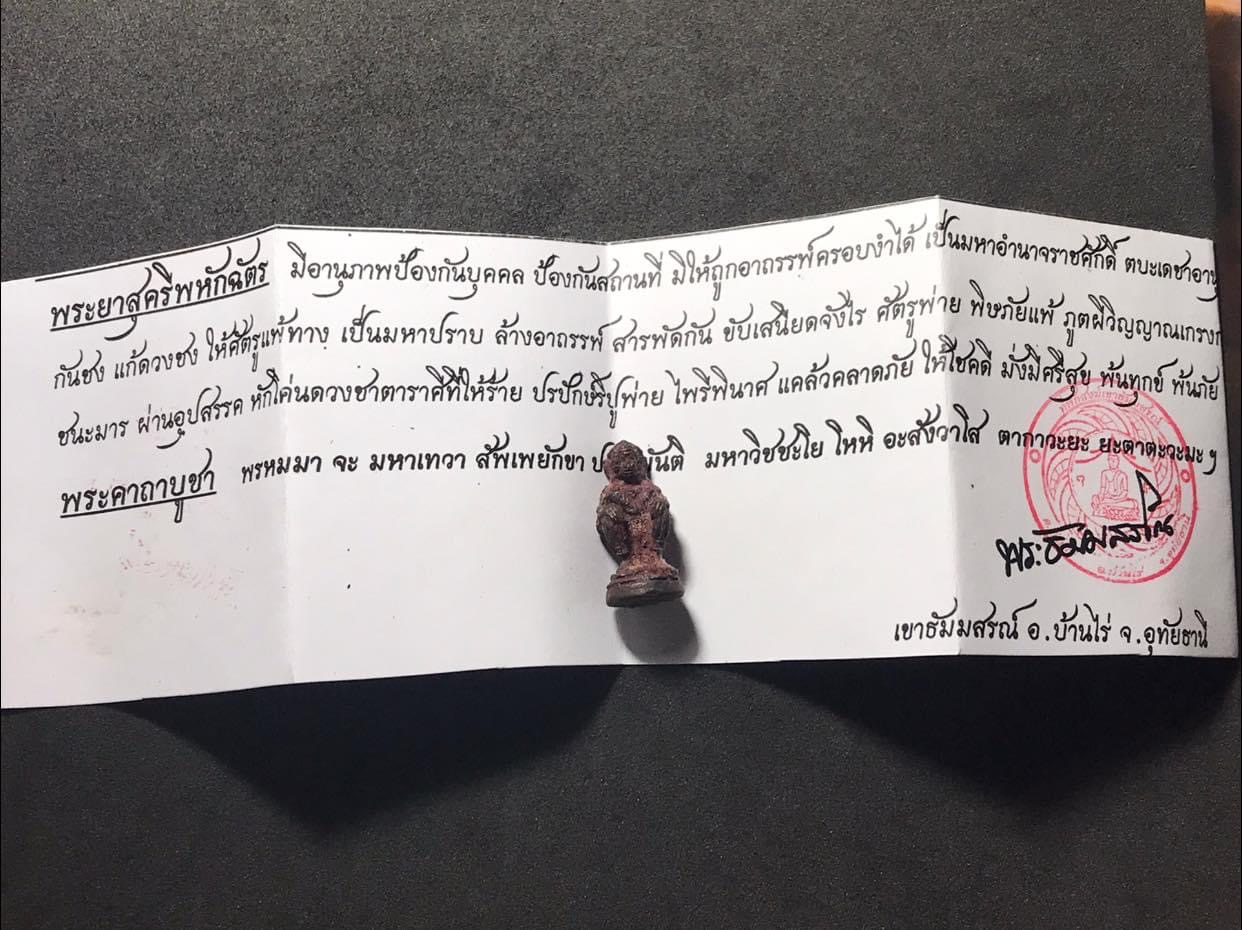 พระยาสุครีพหักฉัตร มีอานุภาพป้องกันบุคคล ป้องกันสถานที่ มิให้ถูกอาถรรพ์ครอบงำได้ เป็นมหาอำนาจราชศักดิ์ ตบะเดชาอานุ
กันชง แก้ดวงชง ให้ศัตรูแพ้ทาง เป็นมหาปราบ ล้างอาถรรพ์ สารพัดกัน ขับเสนียดจังไร ศัตรูพ่าย พิษภัยแพ้ ภูตผีวิญญาณเกรงก
ชนะมาร ผ่านอุปสรรค หักโค่นดวงชาตาราศีที่ให้ร้าย ปรปักษ์ริปูพ่าย ไพรีพินาศ แคล้วคลาดภัย ให้โชคดี มั่งมีศรีสุข พ้นทุกข์ พ้นภัย
พระคาถาบูชา พรหมมา จะ มหาเทวา สัพเพยักขา ป นันติ มหาวิชชะโย โหหิ อะสังวาโส ตากาวะยะ ยะตาตะวะมะ ฯ
พระธัมมสรโณ
เขาธัมมสรณ์ อ.บ้านไร่ จ.อุทัยธานี